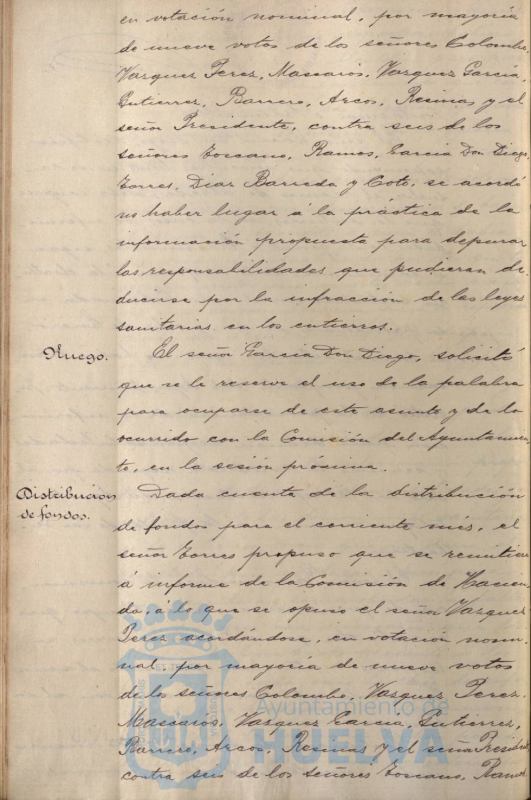 en votación nominal, por mayoría
de nueve votos de los señores Colombo,
Vazquez Perez, Mascarós, Vazquez García,
Gutierrez, Barrero, Arcos, Resinas y el
señor Presidente, contra seis de los
señores Toscano, Ramos, García Don Diego,
Torres, Diaz Barreda y Coto, se acordó
no haber lugar á la práctica de la
información propuesta para depurar
las responsabilidades que pudieran de-
ducirse por la infracción de las leyes
sanitarias en los entierros.
Ruego.
El señor García Don Diego, solicitó
que se le reserve el uso de la palabra
para ocuparse de este asunto y de lo
ocurrido con la Comisión del Ayuntamien-
to, en la sesión próxima.
Distribución
de fondos.
Dada cuenta de la distribución
de fondos para el corriente mes, el
señor Torres propuso que se remitiera
á informe de la Comisión de Hacien-
da, á lo que se opuso el señor Vazquez
Perez acordándose, en votación nomi-
nal, por mayoría de nueve votos
de los señores Colombo, Vazquez Perez,
Mascarós, Vazquez García, Gutierrez,
Barrero, Arcos, Resinas y el señor Presidente
contra seis de los señores Toscano, Ramos
Ayuntamiento de
HUELVA